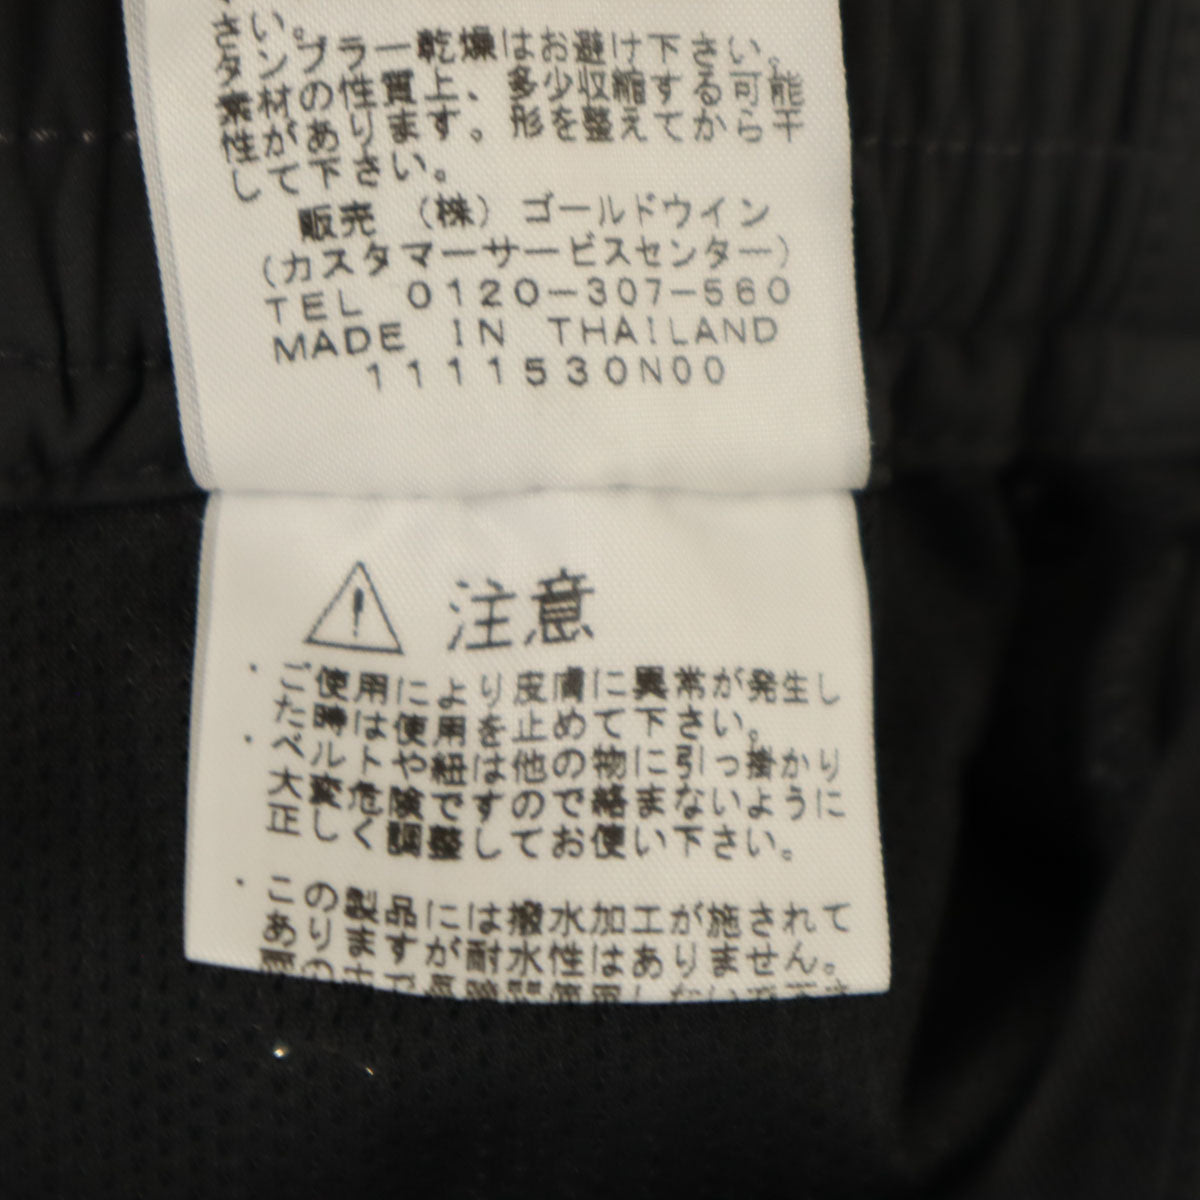 さい。
タンブラー乾燥はお避け下さい。
素材の性質上、多少収縮する可能
性があります。形を整えてから干
して下さい。
販売 (株) ゴールドウイン
(カスタマーサービスセンター)
TEL 0120-307-560
MADE IN THAILAND
1111530N00
注意
・ご使用により皮膚に異常が発生し
た時は使用を止めて下さい。
・ベルトや紐は他の物に引っ掛かり
大変危険ですので絡まないように
正しく調整してお使い下さい。
・この製品には撥水加工が施されて
ありますが耐水性はありません。